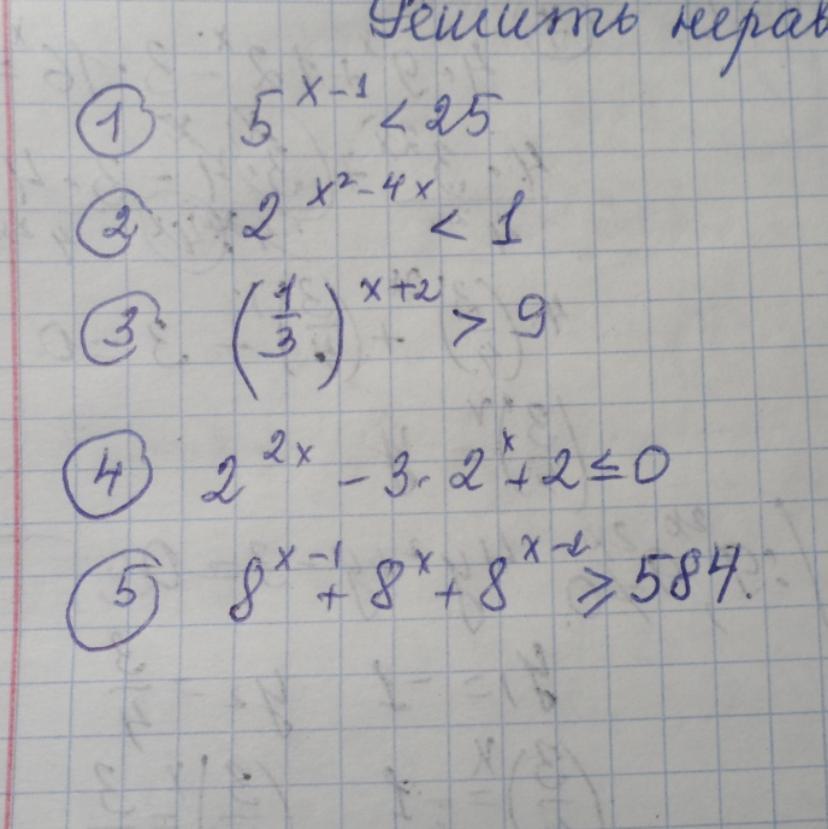 Решить нерав
① 5^(x-1) < 25
② 2^(x²-4x) < 1
③ (1/3)^(x+2) > 9
④ 2^(2x) - 3 · 2^x + 2 ≤ 0
⑤ 8^(x-1) + 8^x + 8^(x-2) ≥ 584.